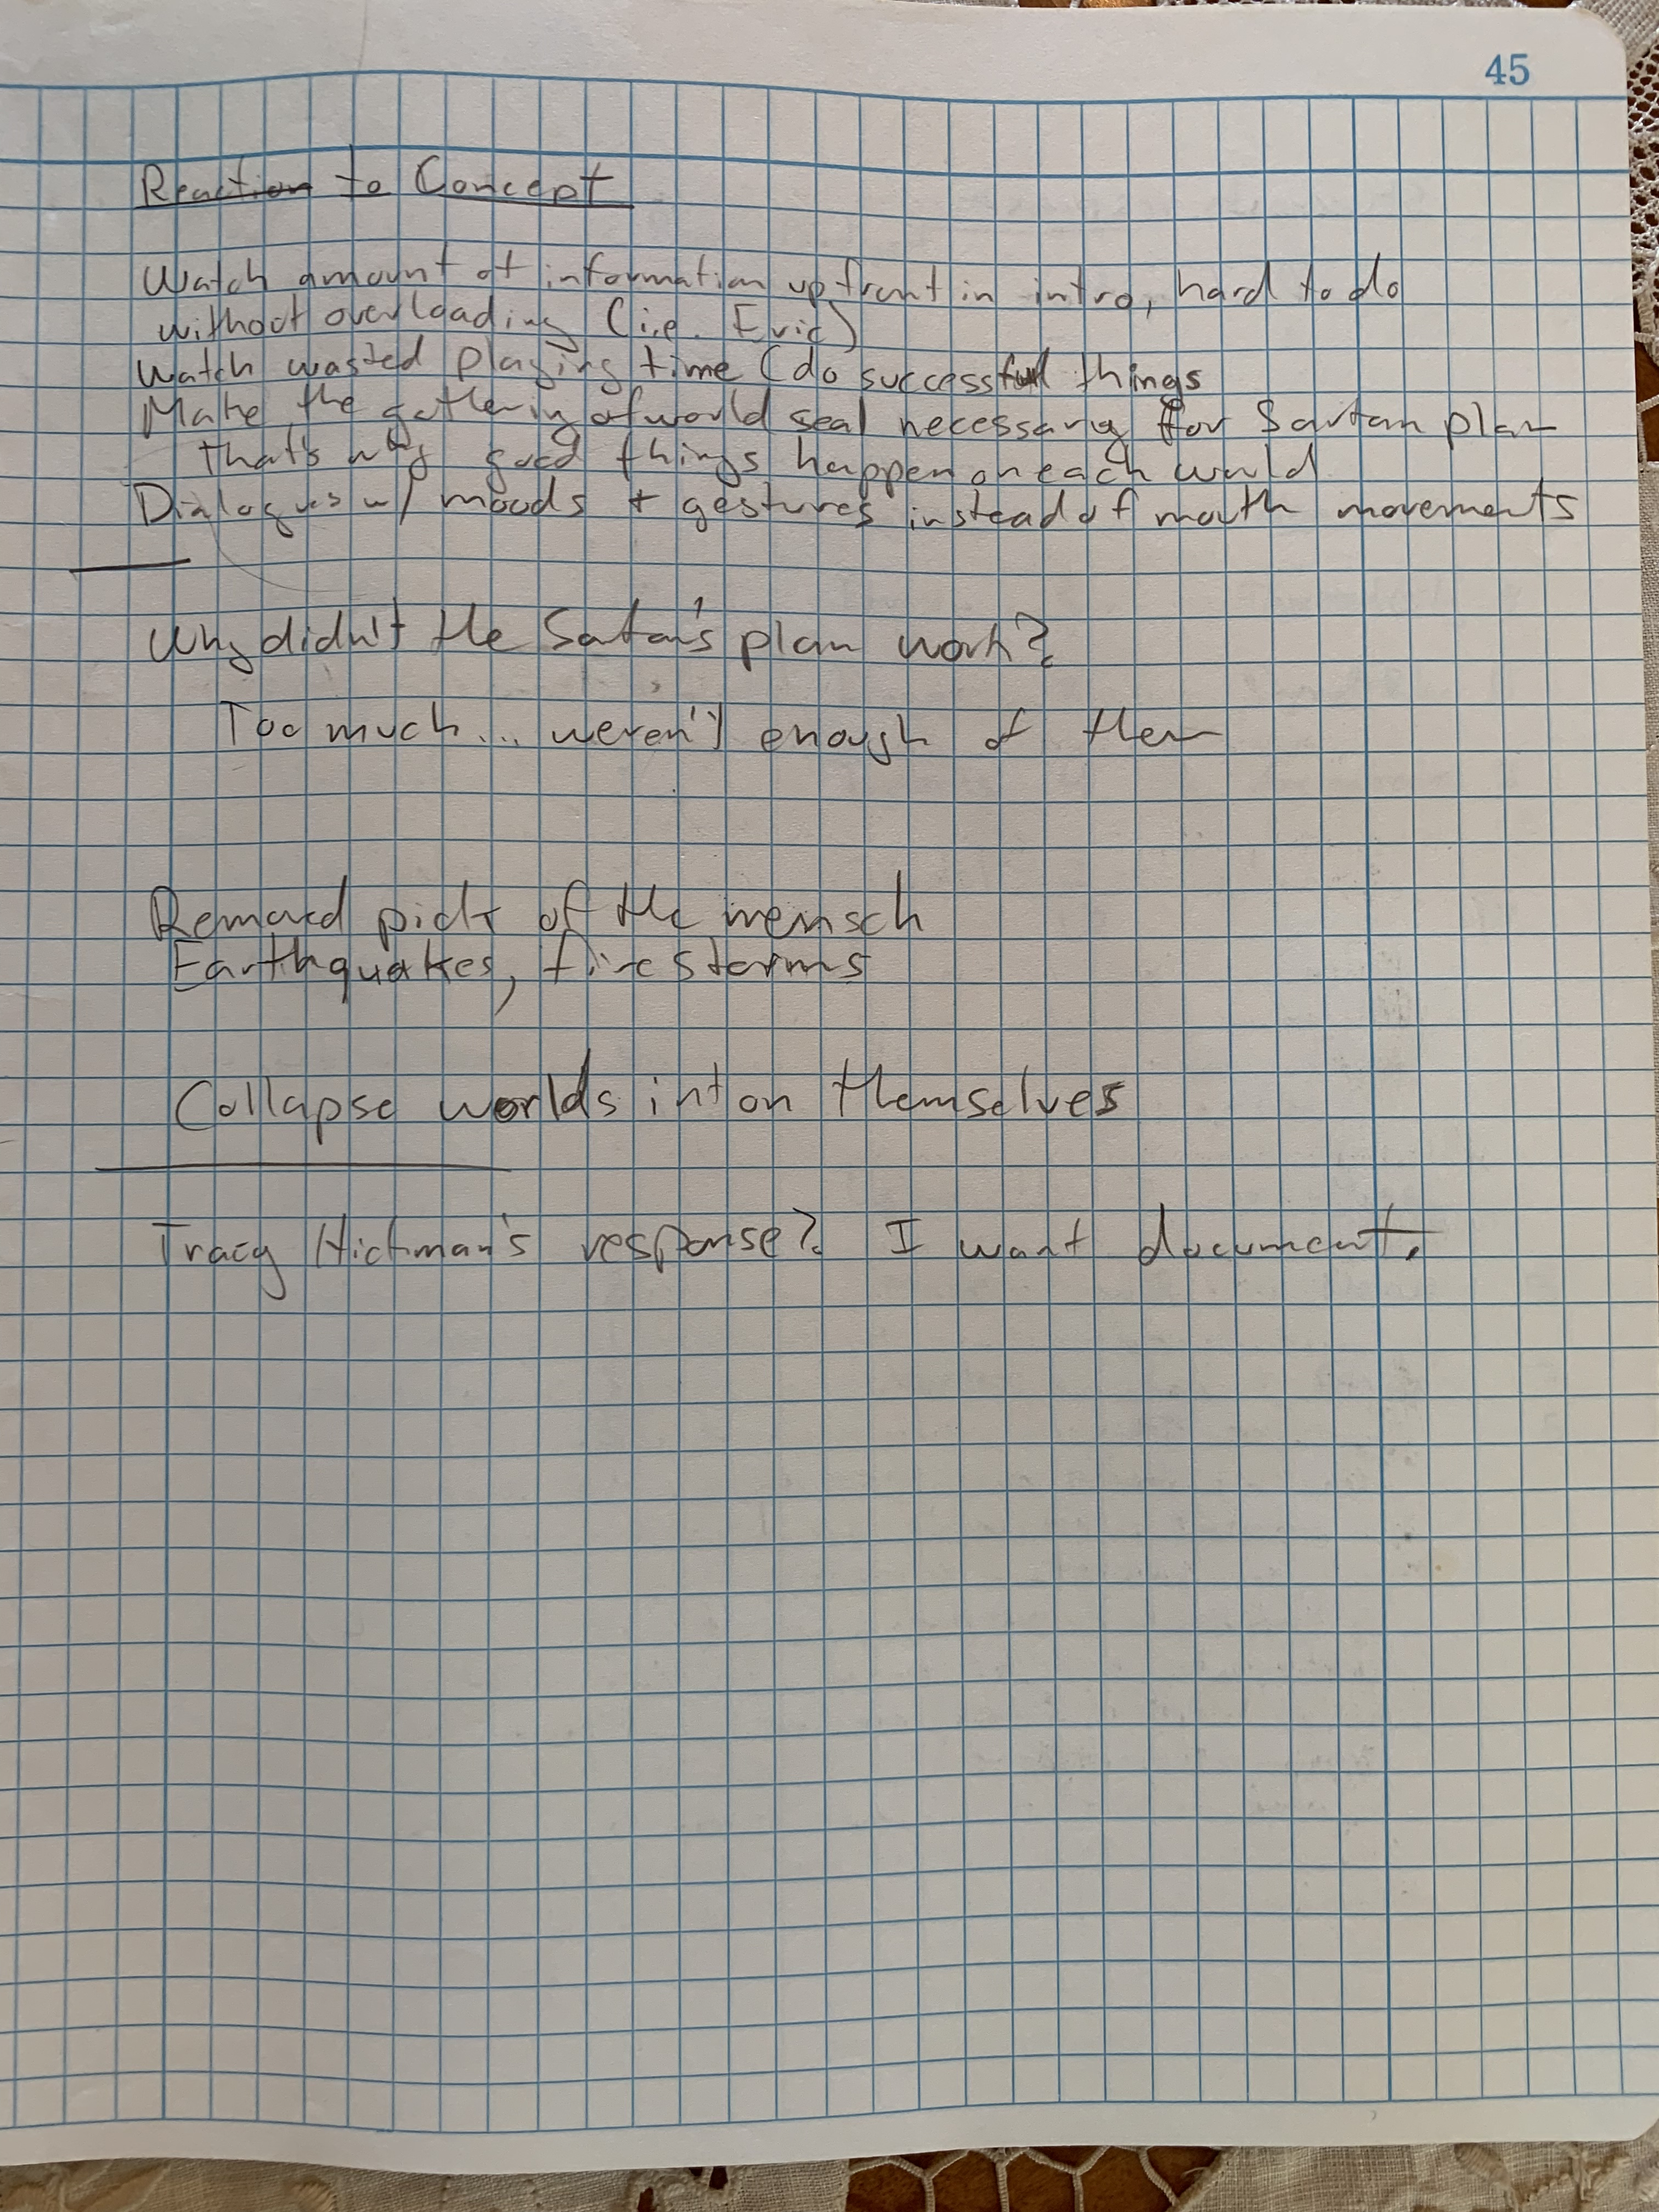 45
Reaction to Concept
Watch amount of information upfront in intro, hard to do
without overloading (i.e. Eric)
Watch wasted playing time (do successful things
Make the gathering of world seal necessary for Sartan plan
that's why good things happen on each world
Dialogues w/ moods + gestures instead of mouth movements
Why didn't the Satan's plan work?
Too much... weren't enough of them
of the mensch
Earthquakes, firestorms
Collapse worlds int on themselves
Tracy Hickman's response? I want document.